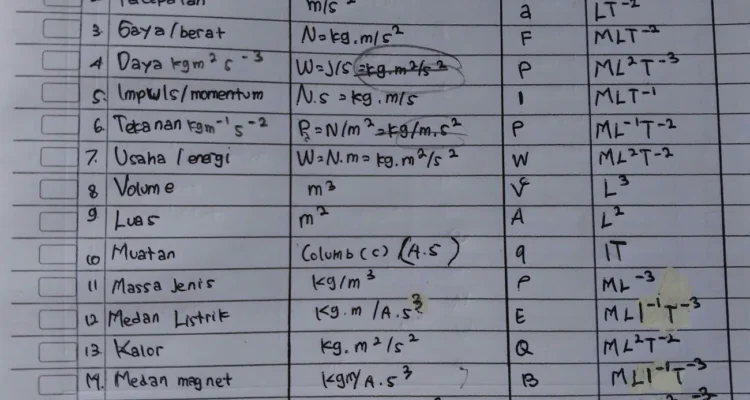 m/s² a LT⁻²
3 Gaya/berat N=kg.m/s² F MLT⁻²
4 Daya kgm² s⁻³ W=J/s =kg.m²/s² P ML²T⁻³
5. Impuls/momentum N.s = kg.m/s I MLT⁻¹
6. Tekanan kgm⁻¹ s⁻² P=N/m²=kg/m.s² P ML⁻¹T⁻²
7. Usaha/energi W=N.m=kg.m²/s² W ML²T⁻²
8 Volume m³ V L³
9 Luas m² A L²
10 Muatan Columb (c) (A.s) q IT
11 Massa Jenis kg/m³ ρ ML⁻³
12 Medan Listrik kg.m/A.s³ E MLI⁻¹T⁻³
13. Kalor kg.m²/s² Q ML²T⁻²
14. Medan magnet kgm/A.s³ B MLI⁻¹T⁻³